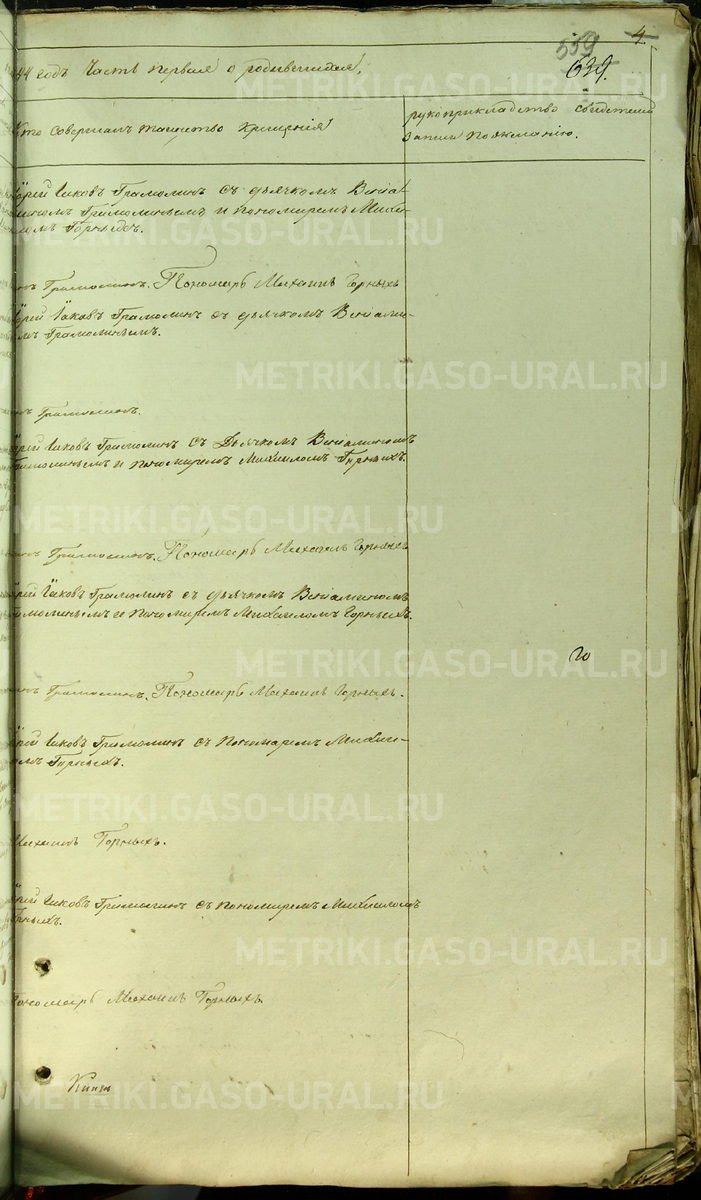 4
559
639.
44 годъ Часть первая о родившихся,
Кто совершалъ таинство крещенія
рукоприкладство свидетелей
записи по желанію.
Іерей Іаковъ Грамолинъ съ дьячкомъ Веніа-
миномъ Грамолинымъ и пономаремъ Михаи-
ломъ Горныхъ.
Грамолинъ. Пономарь Михаилъ Горныхъ
Іерей Іаковъ Грамолинъ съ дьячкомъ Веніами-
номъ Грамолинымъ.
Грамолинъ.
Іерей Іаковъ Грамолинъ съ Дьячкомъ Веніаминомъ
Грамолинымъ и пономаремъ Михаиломъ Горныхъ.
Грамолинъ. Пономарь Михаилъ Горныхъ
Іерей Іаковъ Грамолинъ съ дьячкомъ Веніаминомъ
Грамолинымъ и Пономаремъ Михаиломъ Горныхъ.
Грамолинъ. Пономарь Михаилъ Горныхъ.
Іерей Іаковъ Грамолинъ съ Пономаремъ Михаи-
ломъ Горныхъ.
Михаилъ Горныхъ.
Іерей Іаковъ Грамолинъ съ пономаремъ Михаиломъ
Горныхъ.
Пономарь Михаилъ Горныхъ.
METRIKI.GASO-URAL.RU
METRIKI.GASO-URAL.RU
METRIKI.GASO-URAL.RU
METRIKI.GASO-URAL.RU
METRIKI.GASO-URAL.RU
METRIKI.GASO-URAL.RU
METRIKI.GASO-URAL.RU